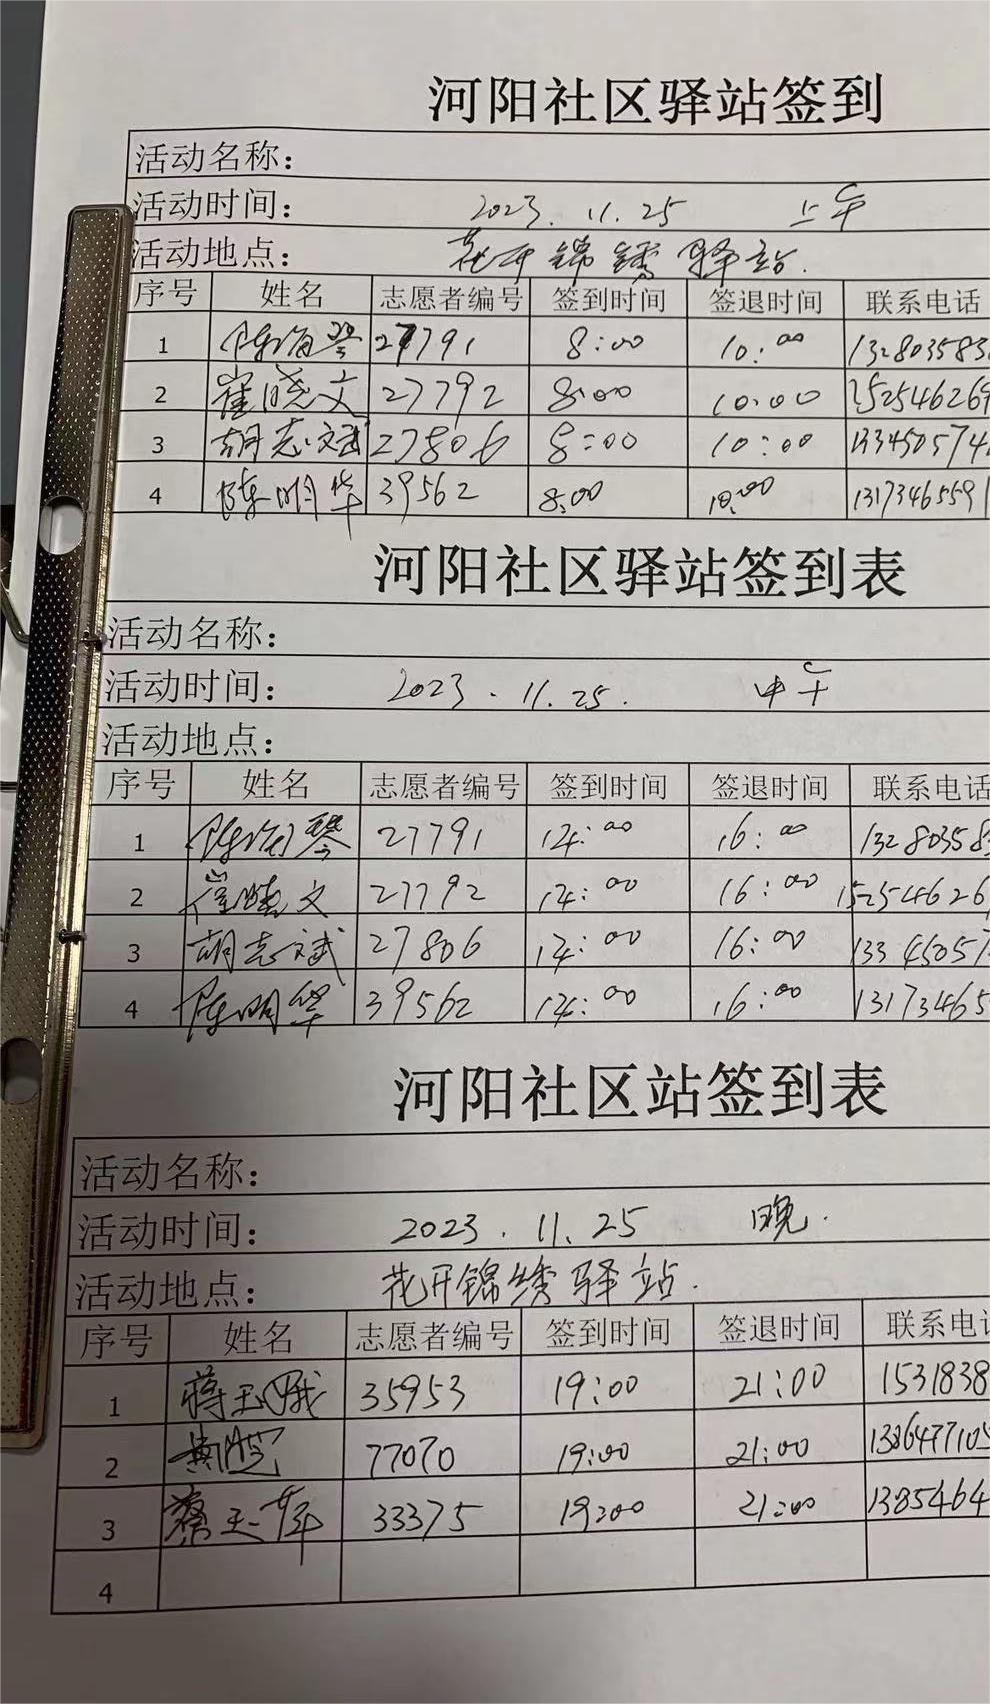 河阳社区驿站签到
活动名称：
活动时间： 2023.11.25 上午
活动地点： 花开锦绣驿站.
序号 姓名 志愿者编号 签到时间 签退时间 联系电话
1 陈海琴 27791 8:00 10:00 132803583
2 崔晓文 27792 8:00 10:00 152546269
3 胡志斌 27806 8:00 10:00 133450574
4 陈明华 39562 8:00 10:00 1317346559
河阳社区驿站签到表
活动名称：
活动时间： 2023.11.25. 中午
活动地点：
序号 姓名 志愿者编号 签到时间 签退时间 联系电话
1 陈海琴 27791 14:00 16:00 13280358
2 崔晓文 27792 14:00 16:00 15254626
3 胡志斌 27806 14:00 16:00 13345057
4 陈明华 39562 14:00 16:00 13173465
河阳社区站签到表
活动名称：
活动时间： 2023.11.25 晚.
活动地点： 花开锦绣驿站.
序号 姓名 志愿者编号 签到时间 签退时间 联系电话
1 蒋玉娥 35953 19:00 21:00 1531838
2 77070 19:00 21:00 1386477105
3 33375 19:00 21:00 1385464
4